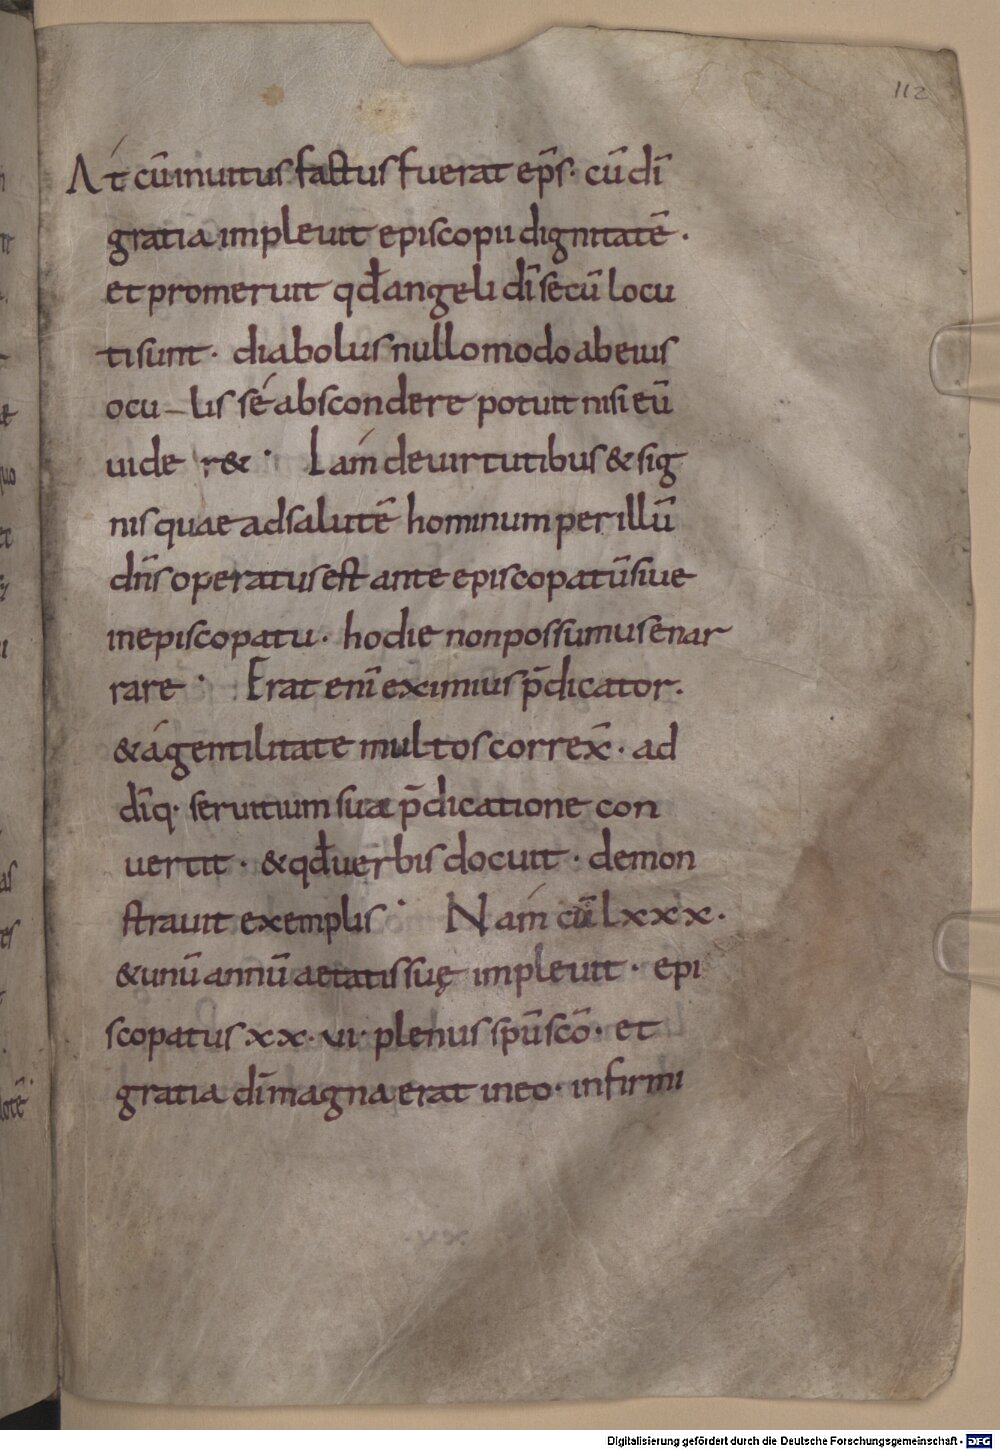 112
At cū inuitus factus fuerat ep̄s · cū dī
gratia impleuit episcopii dignitatē ·
et promeruit qđ angeli dī secū locu
ti sunt · diabolus nullo modo ab eius
ocu–lis se abscondere potuit nisi eū
uide r& · Iam de uirtutibus & sig
nis quae ad salutē hominum per illū
dn̄s operatus est ante episcopatū siue
in episcopatu · hodie non possumus enar
rare · Erat enī eximius p̄dicator ·
& a gentilitate multos correx̄ · ad
dīq· seruitium sua p̄dicatione con
uertit · & qđ uerbis docuit · demon
strauit exemplis · Nam cū lxxx ·
& unū annū aetatis suę impleuit · epi
scopatus xx · vi · plenus sp̄u scō · et
gratia dī magna erat in eo · infirmi
Digitalisierung gefördert durch die Deutsche Forschungsgemeinschaft - DFG